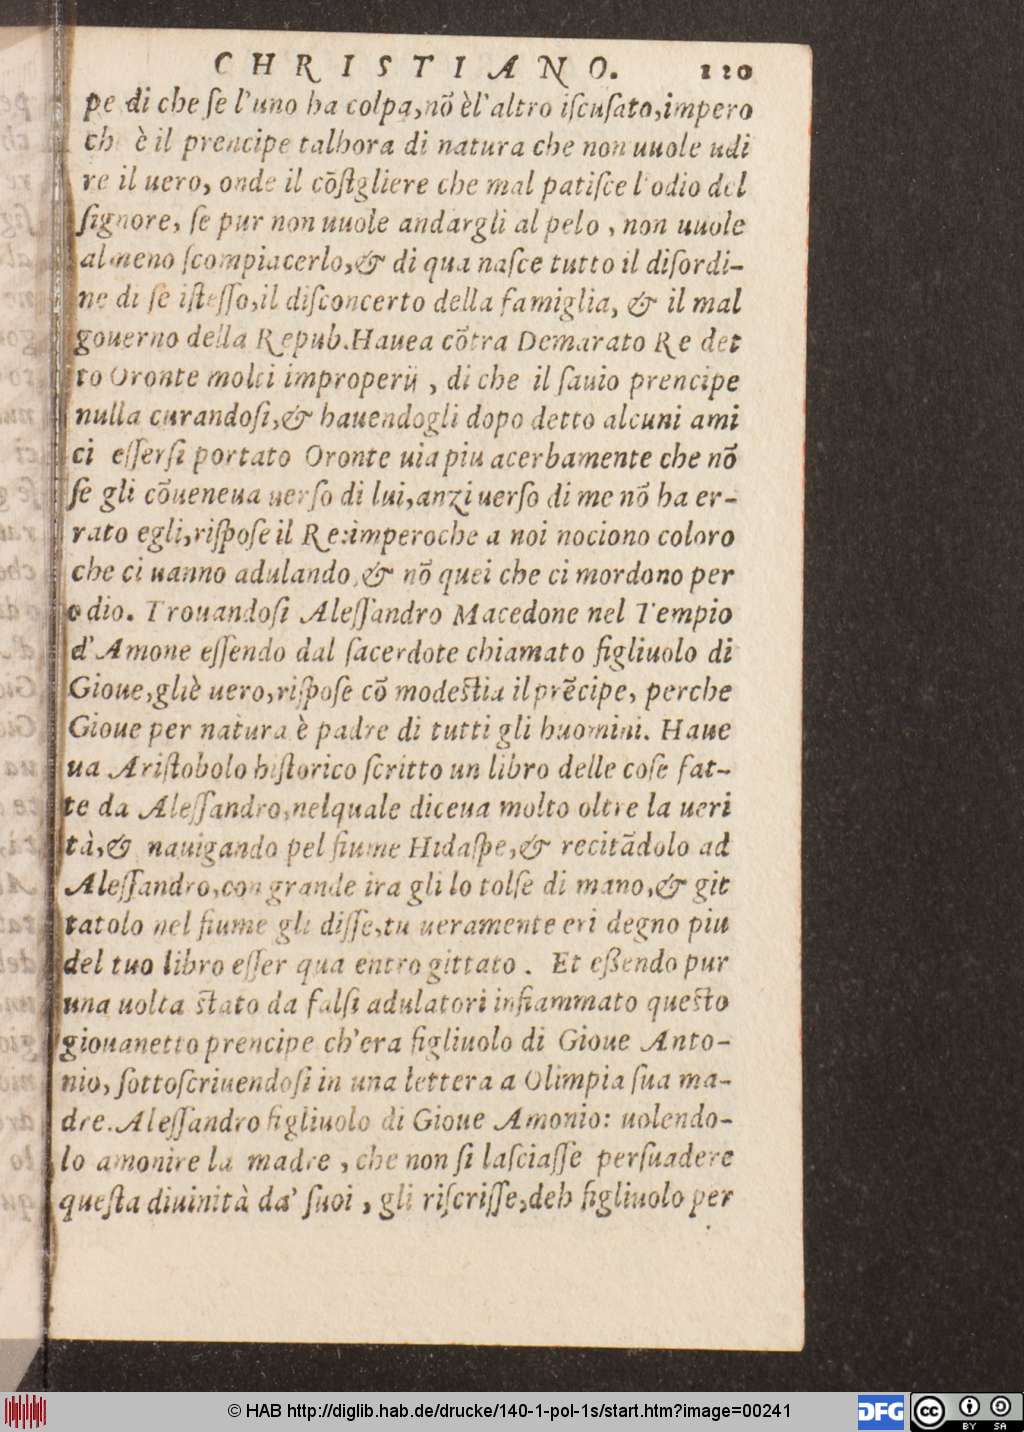 CHRISTIANO. 120
pe di che ſe l'uno ha colpa,nõ èl'altro iſcuſato,impero
ch è il prencipe talhora di natura che non uuole udi
re il uero, onde il cõſigliere che mal patiſce l'odio del
ſignore, ſe pur non uuole andargli al pelo , non uuole
almeno ſcompiacerlo,& di qua naſce tutto il diſordi-
ne di ſe iſteſſo,il diſconcerto della famiglia, & il mal
gouerno della Repub.Hauea cõtra Demarato Re det
to Oronte molti improperij , di che il ſauio prencipe
nulla curandoſi,& hauendogli dopo detto alcuni ami
ci eſſerſi portato Oronte uia piu acerbamente che nõ
ſe gli cõueneua uerſo di lui,anzi uerſo di me nõ ha er-
rato egli,riſpoſe il Re:imperoche a noi nociono coloro
che ci uanno adulando,& nõ quei che ci mordono per
odio. Trouandoſi Aleſſandro Macedone nel Tempio
d'Amone eſſendo dal ſacerdote chiamato figliuolo di
Gioue,gliè uero,riſpoſe cõ modeſtia il prẽcipe, perche
Gioue per natura è padre di tutti gli huomini. Haue
ua Ariſtobolo hiſtorico ſcritto un libro delle coſe fat-
te da Aleſſandro,nelquale diceua molto oltre la ueri
tà,& nauigando pel fiume Hidaſpe,& recitãdolo ad
Aleſſandro,con grande ira gli lo tolſe di mano,& git
tatolo nel fiume gli diſſe,tu ueramente eri degno piu
del tuo libro eſſer qua entro gittato . Et eßendo pur
una uolta ſtato da falſi adulatori infiammato queſto
giouanetto prencipe ch'era figliuolo di Gioue Anto-
nio, ſottoſcriuendoſi in una lettera a Olimpia ſua ma-
dre.Aleſſandro figliuolo di Gioue Amonio: uolendo-
lo amonire la madre , che non ſi laſciaſſe perſuadere
queſta diuinità da' ſuoi , gli riſcriſſe,deh figliuolo per
© HAB http://diglib.hab.de/drucke/140-1-pol-1s/start.htm?image=00241
DFG
cc BY SA